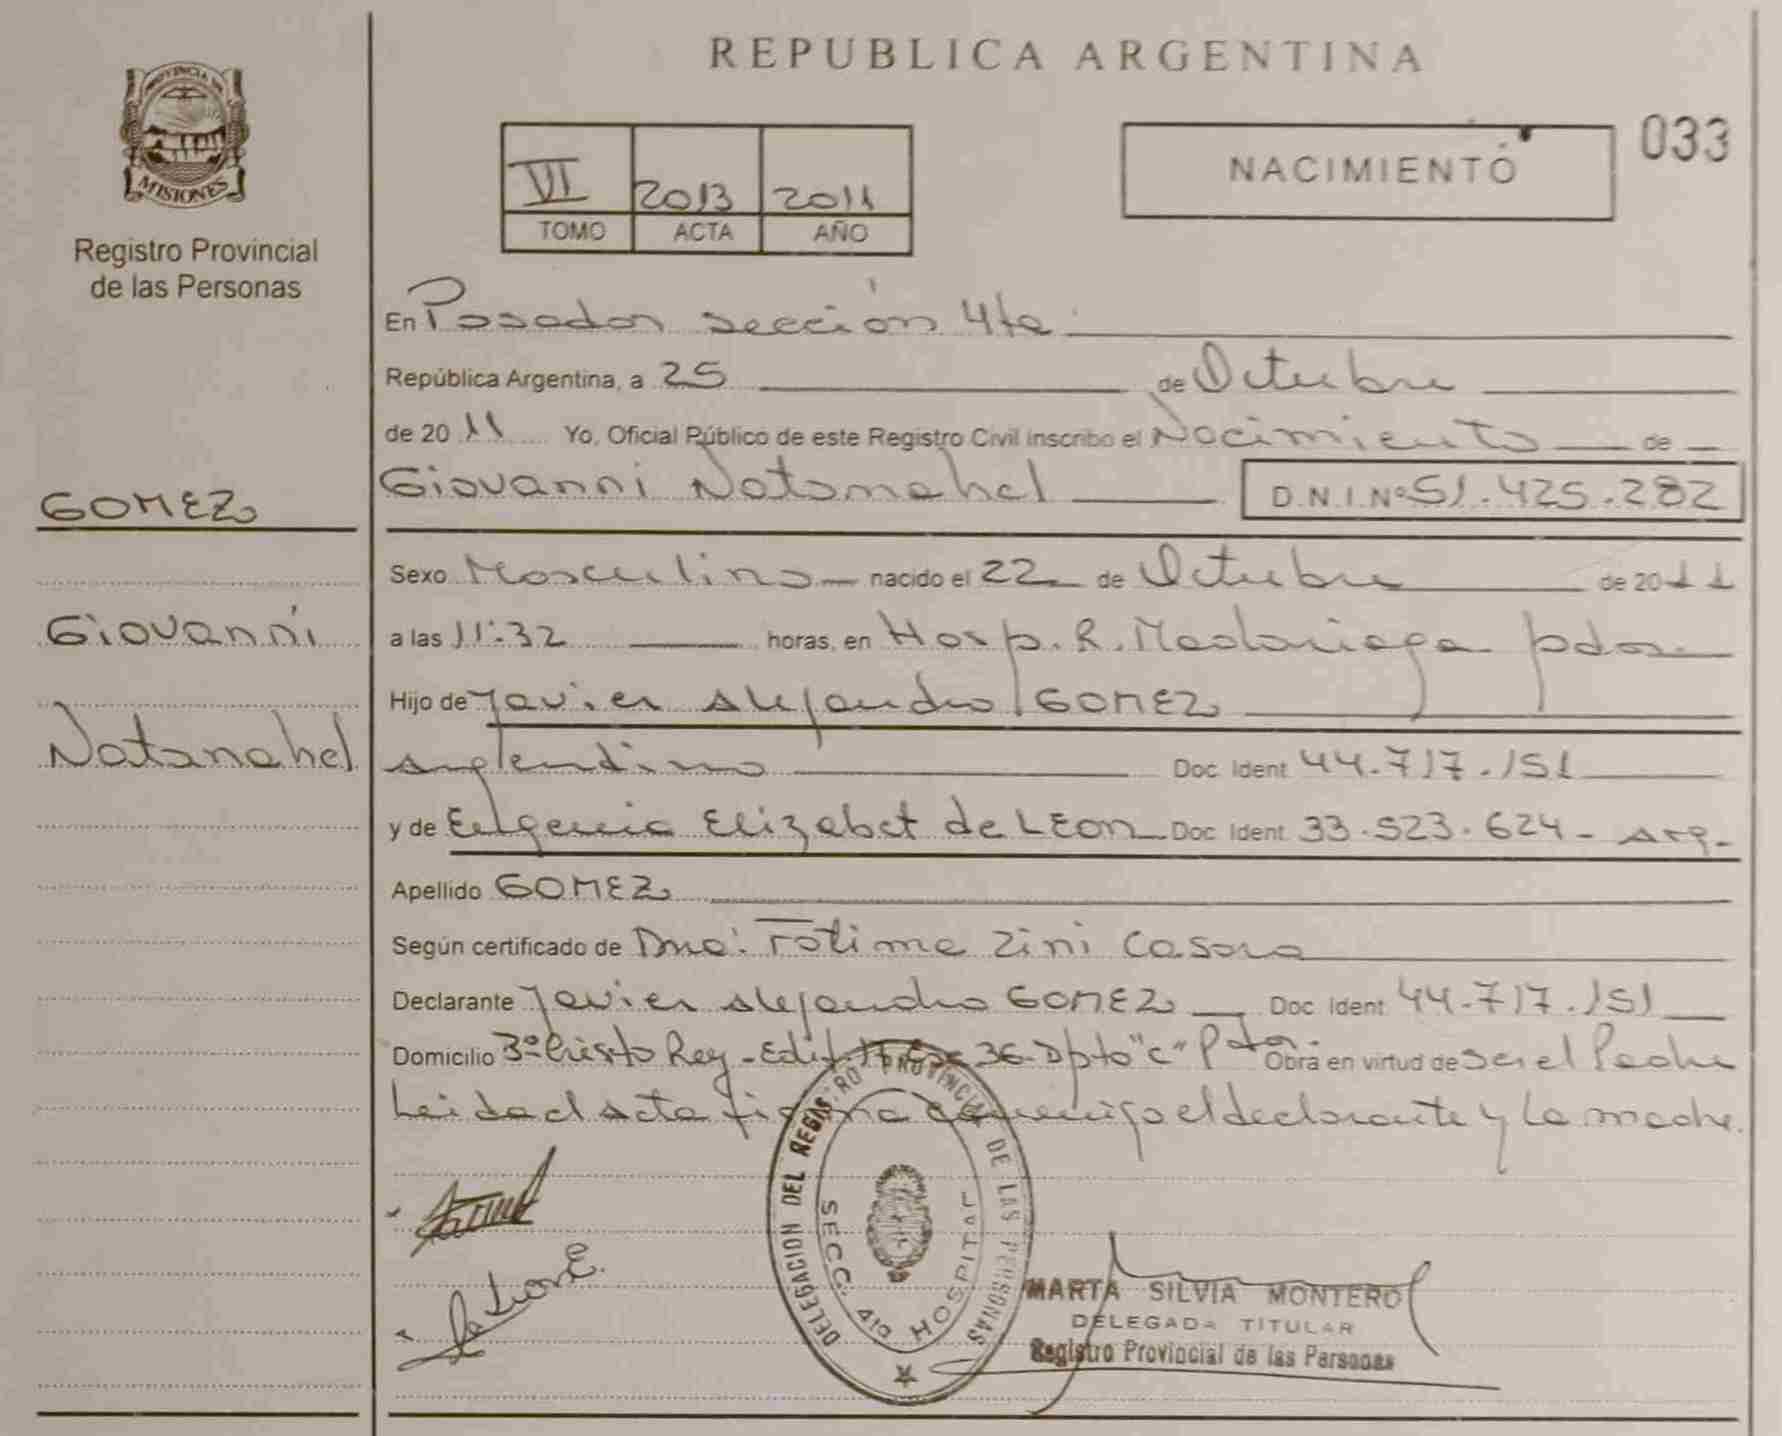 REPUBLICA ARGENTINA
PROVINCIA DE
MISIONES
Registro Provincial
de las Personas
VI 2013 2011
TOMO ACTA AÑO
NACIMIENTO
033
En Posadas sección 4ta
República Argentina, a 25 de Octubre
de 2011 Yo, Oficial Público de este Registro Civil inscribo el Nacimiento de
GOMEZ
Giovanni Natanahel D.N.I.Nº 51.425.282
Sexo Masculino nacido el 22 de Octubre de 2011
Giovanni
a las 11:32 horas, en Hosp. R. Madariaga pdas.
Hijo de Javier Alejandro GOMEZ
Natanahel
Argentino Doc Ident 44.717.151
y de Eugenia Elizabet de LEON Doc Ident 33.523.624 - Arg.
Apellido GOMEZ
Según certificado de Dra: Fatima Zini Casara
Declarante Javier Alejandro GOMEZ Doc Ident 44.717.151
Domicilio 3º Cristo Rey - Edif. 36 - Dpto "C" Pdas. Obra en virtud de ser el Padre
Leida el Acta firma conmigo el declarante y la madre.
DELEGACION DEL REGISTRO PROVINCIAL DE LAS PERSONAS
SECC. 4ta HOSPITAL
MARTA SILVIA MONTERO
DELEGADA TITULAR
Registro Provincial de las Personas